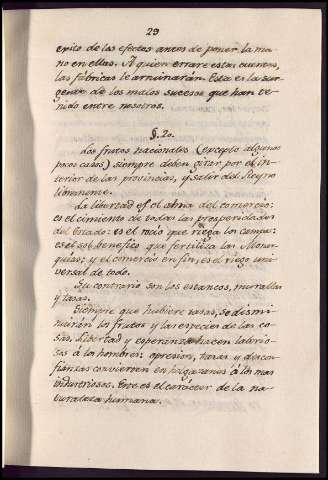 29
exito de las efectas antes de poner la ma-
no en ellas. A quien errare estas cuentas,
las fábricas le arruinarán. Esta es la sur-
gente de los malos sucesos que han ve-
nido entre nosotros.
§. 20.
Los frutos nacionales (excepto algunos
pocos casos) siempre deben girar por el in-
terior de las provincias, y salir del Reyno
libremente.
La libertad es el alma del comercio;
es el cimiento de todas las prosperidades
del Estado: es el rocío que riega los campos:
es el sol benefico que fertiliza las Monar-
quías; y el comercio en fin, es el riego uni-
versal de todo.
Su contrario son los estancos, murallas
y tasas.
Siempre que hubiere tasas, se dismi-
nuirán los frutos y las especies de las co-
sas. Libertad y esperanza hacen laborio-
sos á los hombres: opresion, tasas y descon-
fianzas convierten en holgazanes á los mas
industriosos. Este es el carácter de la na-
turaleza humana.